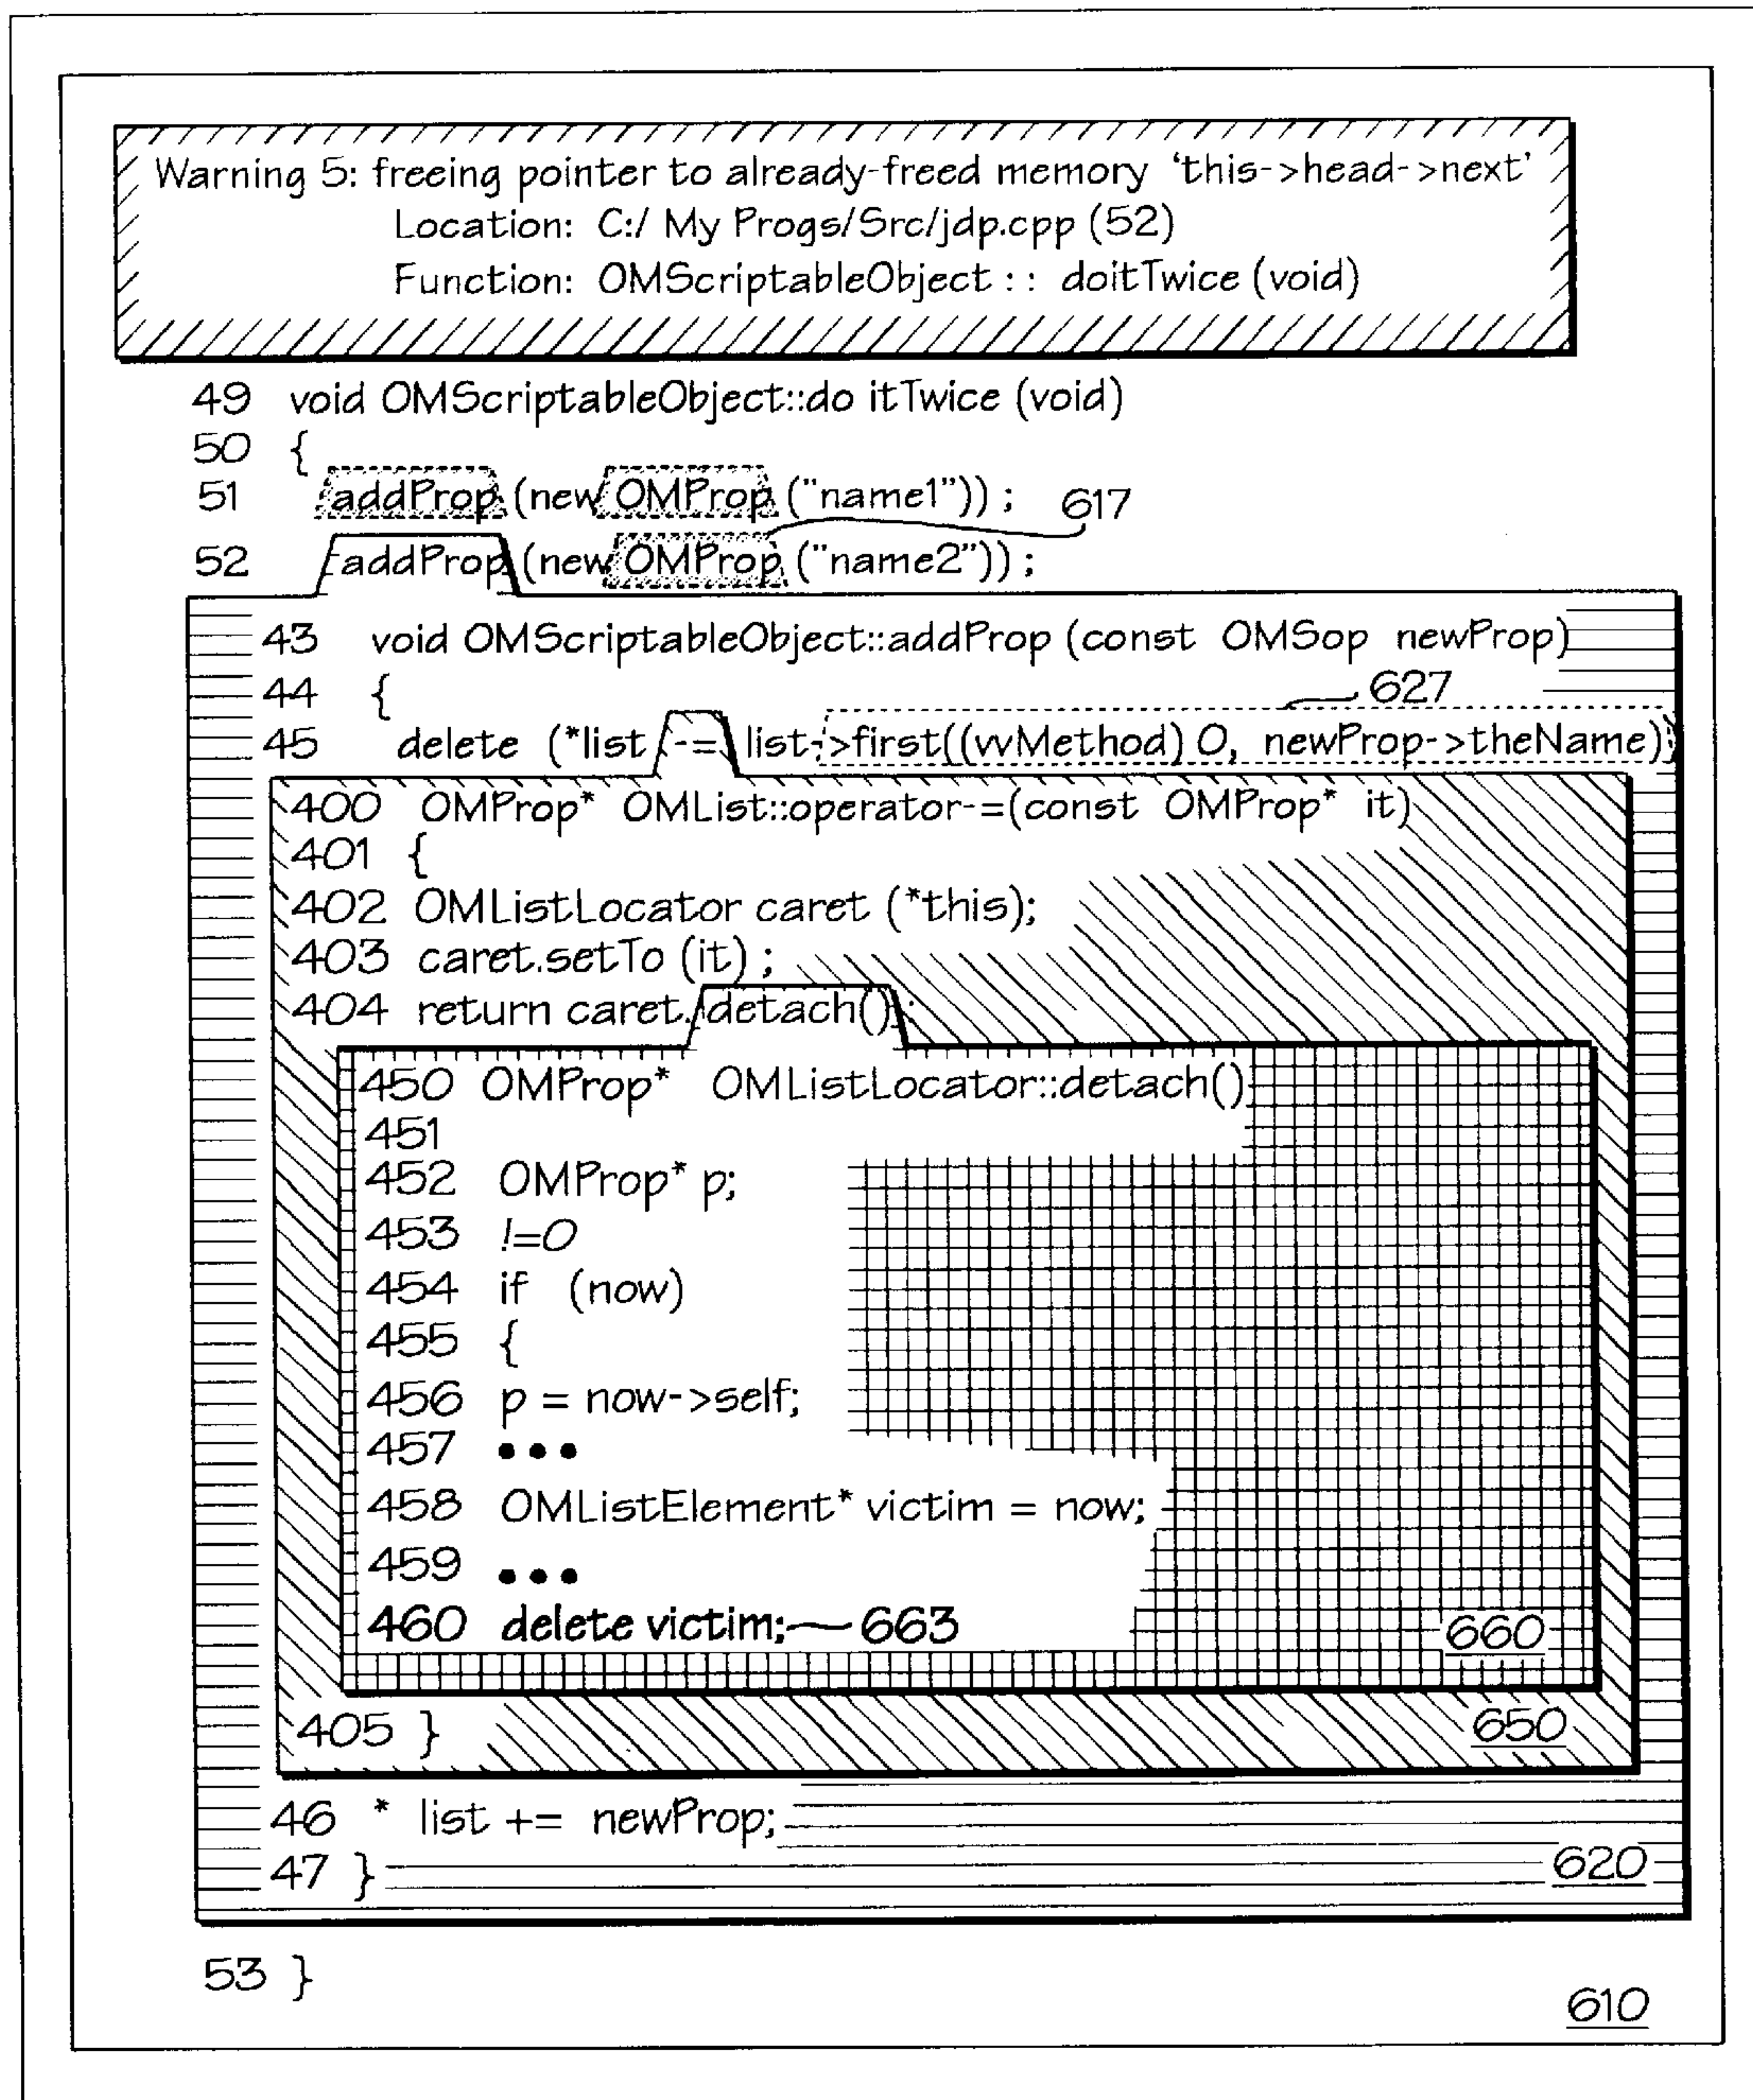 Warning 5: freeing pointer to already-freed memory ‘this->head->next’
Location: C:/ My Progs/Src/jdp.cpp (52)
Function: OMScriptableObject : : doitTwice (void)
49 void OMScriptableObject::do itTwice (void)
50 {
51 addProp (new OMProp ("name1")) ; 617
52 addProp (new OMProp ("name2")) ;
43 void OMScriptableObject::addProp (const OMSop newProp)
44 { 627
45 delete (*list -= list->first((vvMethod) 0, newProp->theName));
400 OMProp* OMList::operator-=(const OMProp* it)
401 {
402 OMListLocator caret (*this);
403 caret.setTo (it) ;
404 return caret. detach();
450 OMProp* OMListLocator::detach()
451
452 OMProp* p;
453 !=0
454 if (now)
455 {
456 p = now->self;
457 •••
458 OMListElement* victim = now;
459 •••
460 delete victim; 663
660
405 } 650
46 * list += newProp;
47 } 620
53 }
610